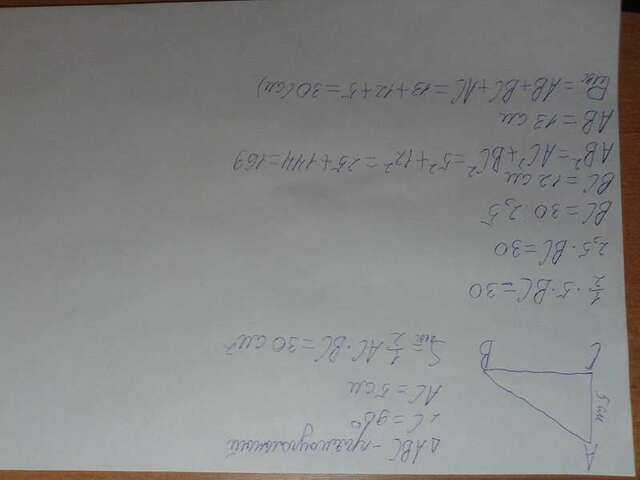 A
5 см
C
B
ΔABC - прямоугольный
∠C = 90°
AC = 5 см
Sавс = 1/2 AC · BC = 30 см²
1/2 · 5 · BC = 30
2,5 · BC = 30
BC = 30 2,5
BC = 12 см
AB² = AC² + BC² = 5² + 12² = 25 + 144 = 169
AB = 13 см
Pавс = AB + BC + AC = 13 + 12 + 5 = 30 (см)